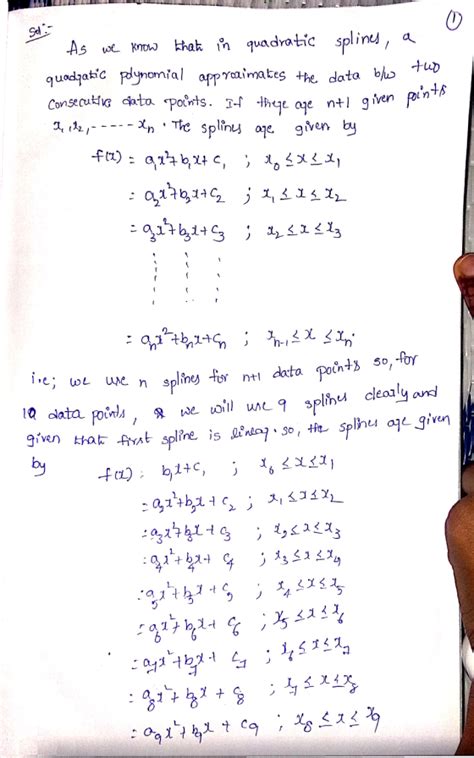 ①
Sol:-
As we know that in quadratic splines, a
quadratic polynomial approximates the data b/w two
consecutive data points. If there are n+1 given points
x₁, x₂, ----- xₙ. The splines are given by
f(x) = a₁x²+b₁x+c₁ ; x₀ ≤ x ≤ x₁
= a₂x²+b₂x+c₂ ; x₁ ≤ x ≤ x₂
= a₃x²+b₃x+c₃ ; x₂ ≤ x ≤ x₃
= aₙx²+bₙx+cₙ ; xₙ₋₁ ≤ x ≤ xₙ.
i.e; we use n splines for n+1 data points so, for
10 data points, we will use 9 splines clearly and
given that first spline is linear. so, the splines are given
by
f(x) : b₁x+c₁ ; x₀ ≤ x ≤ x₁
= a₂x²+b₂x+c₂ ; x₁ ≤ x ≤ x₂
= a₃x²+b₃x+c₃ ; x₂ ≤ x ≤ x₃
= a₄x²+b₄x+c₄ ; x₃ ≤ x ≤ x₄
= a₅x²+b₅x+c₅ ; x₄ ≤ x ≤ x₅
= a₆x²+b₆x+c₆ ; x₅ ≤ x ≤ x₆
= a₇x²+b₇x+c₇ ; x₆ ≤ x ≤ x₇
= a₈x²+b₈x+c₈ ; x₇ ≤ x ≤ x₈
= a₉x²+b₉x+c₉ ; x₈ ≤ x ≤ x₉